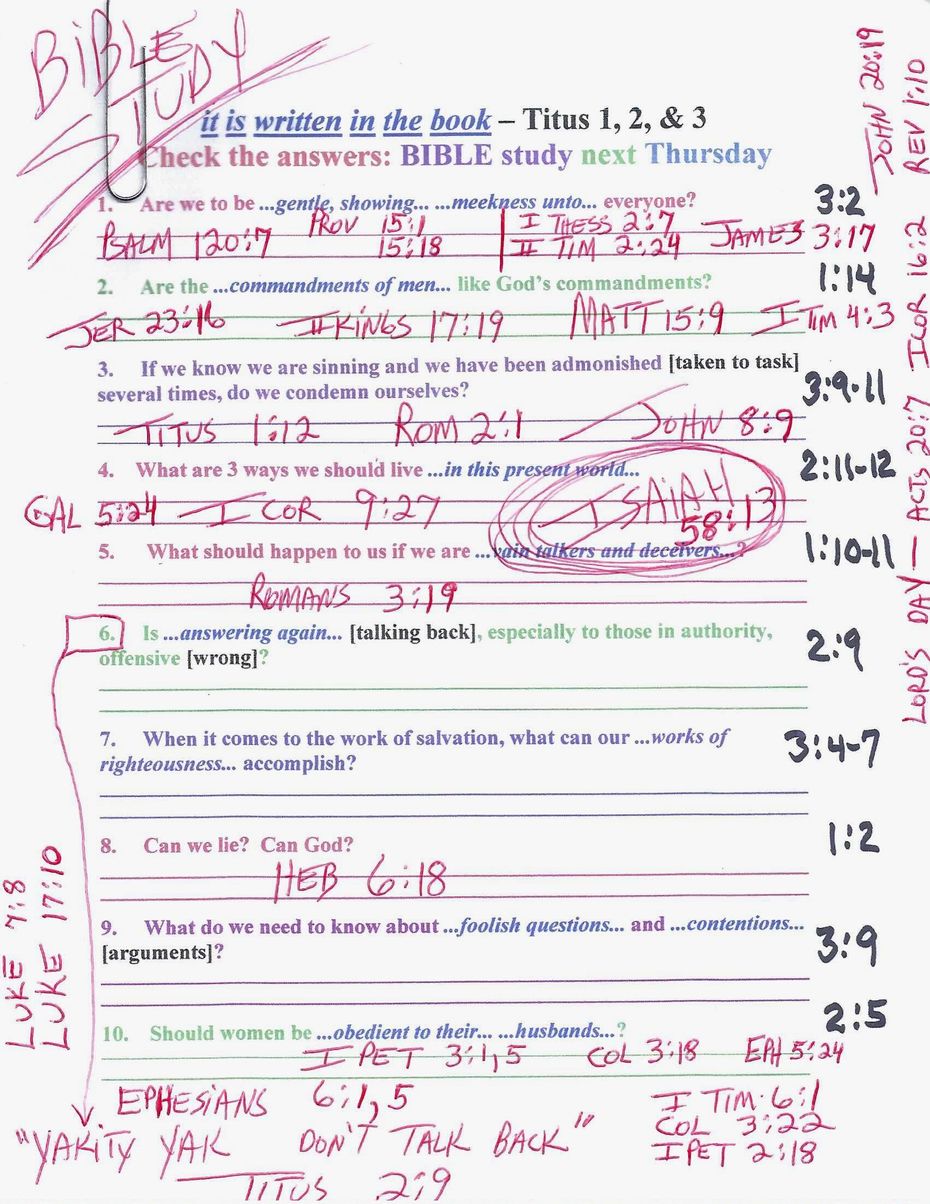 BiBLE
STUDY
it is written in the book – Titus 1, 2, & 3
Check the answers: BIBLE study next Thursday
1. Are we to be ...gentle, showing... ...meekness unto... everyone?
3:2
PSALM 120:7 PROV 15:1 I THESS 2:7 JAMES 3:17
15:18 II TIM 2:24
2. Are the ...commandments of men... like God's commandments?
1:14
JER 23:16 II KiNGS 17:19 MATT 15:9 I TIM 4:3
3. If we know we are sinning and we have been admonished [taken to task]
several times, do we condemn ourselves?
3:9-11
TITUS 1:12 ROM 2:1 JOHN 8:9
4. What are 3 ways we should live ...in this present world...
2:11-12
GAL 5:24 I COR 9:27 ISAiAH
58:13
5. What should happen to us if we are ...vain talkers and deceivers...?
1:10-11
ROMANS 3:19
6. Is ...answering again... [talking back], especially to those in authority,
offensive [wrong]?
2:9
7. When it comes to the work of salvation, what can our ...works of
righteousness... accomplish?
3:4-7
8. Can we lie? Can God?
1:2
HEB 6:18
9. What do we need to know about ...foolish questions... and ...contentions...
[arguments]?
3:9
10. Should women be ...obedient to their... ...husbands...?
2:5
I PET 3:1,5 COL 3:18 EPH 5:24
EPHESiANS 6:1,5
"YAKiTY YAK DON'T TALK BACK"
TITUS 2:9
I TIM 6:1
COL 3:22
I PET 2:18
LUKE 7:8
LUKE 17:10
JOHN 20:19
LORD'S DAY — ACTS 20:7 I COR 16:2 REV 1:10